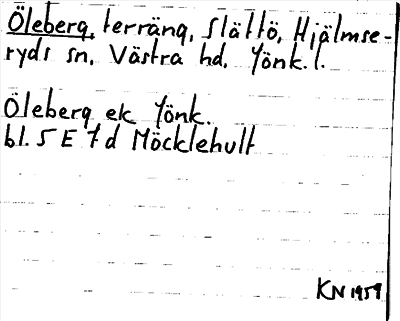 Öleberg, terräng, Slättö, Hjälmse-
ryds sn, Västra hd, Jönk. l.
Öleberg ek Jönk.
bl. 5 E 7 d Möcklehult
KN 1959